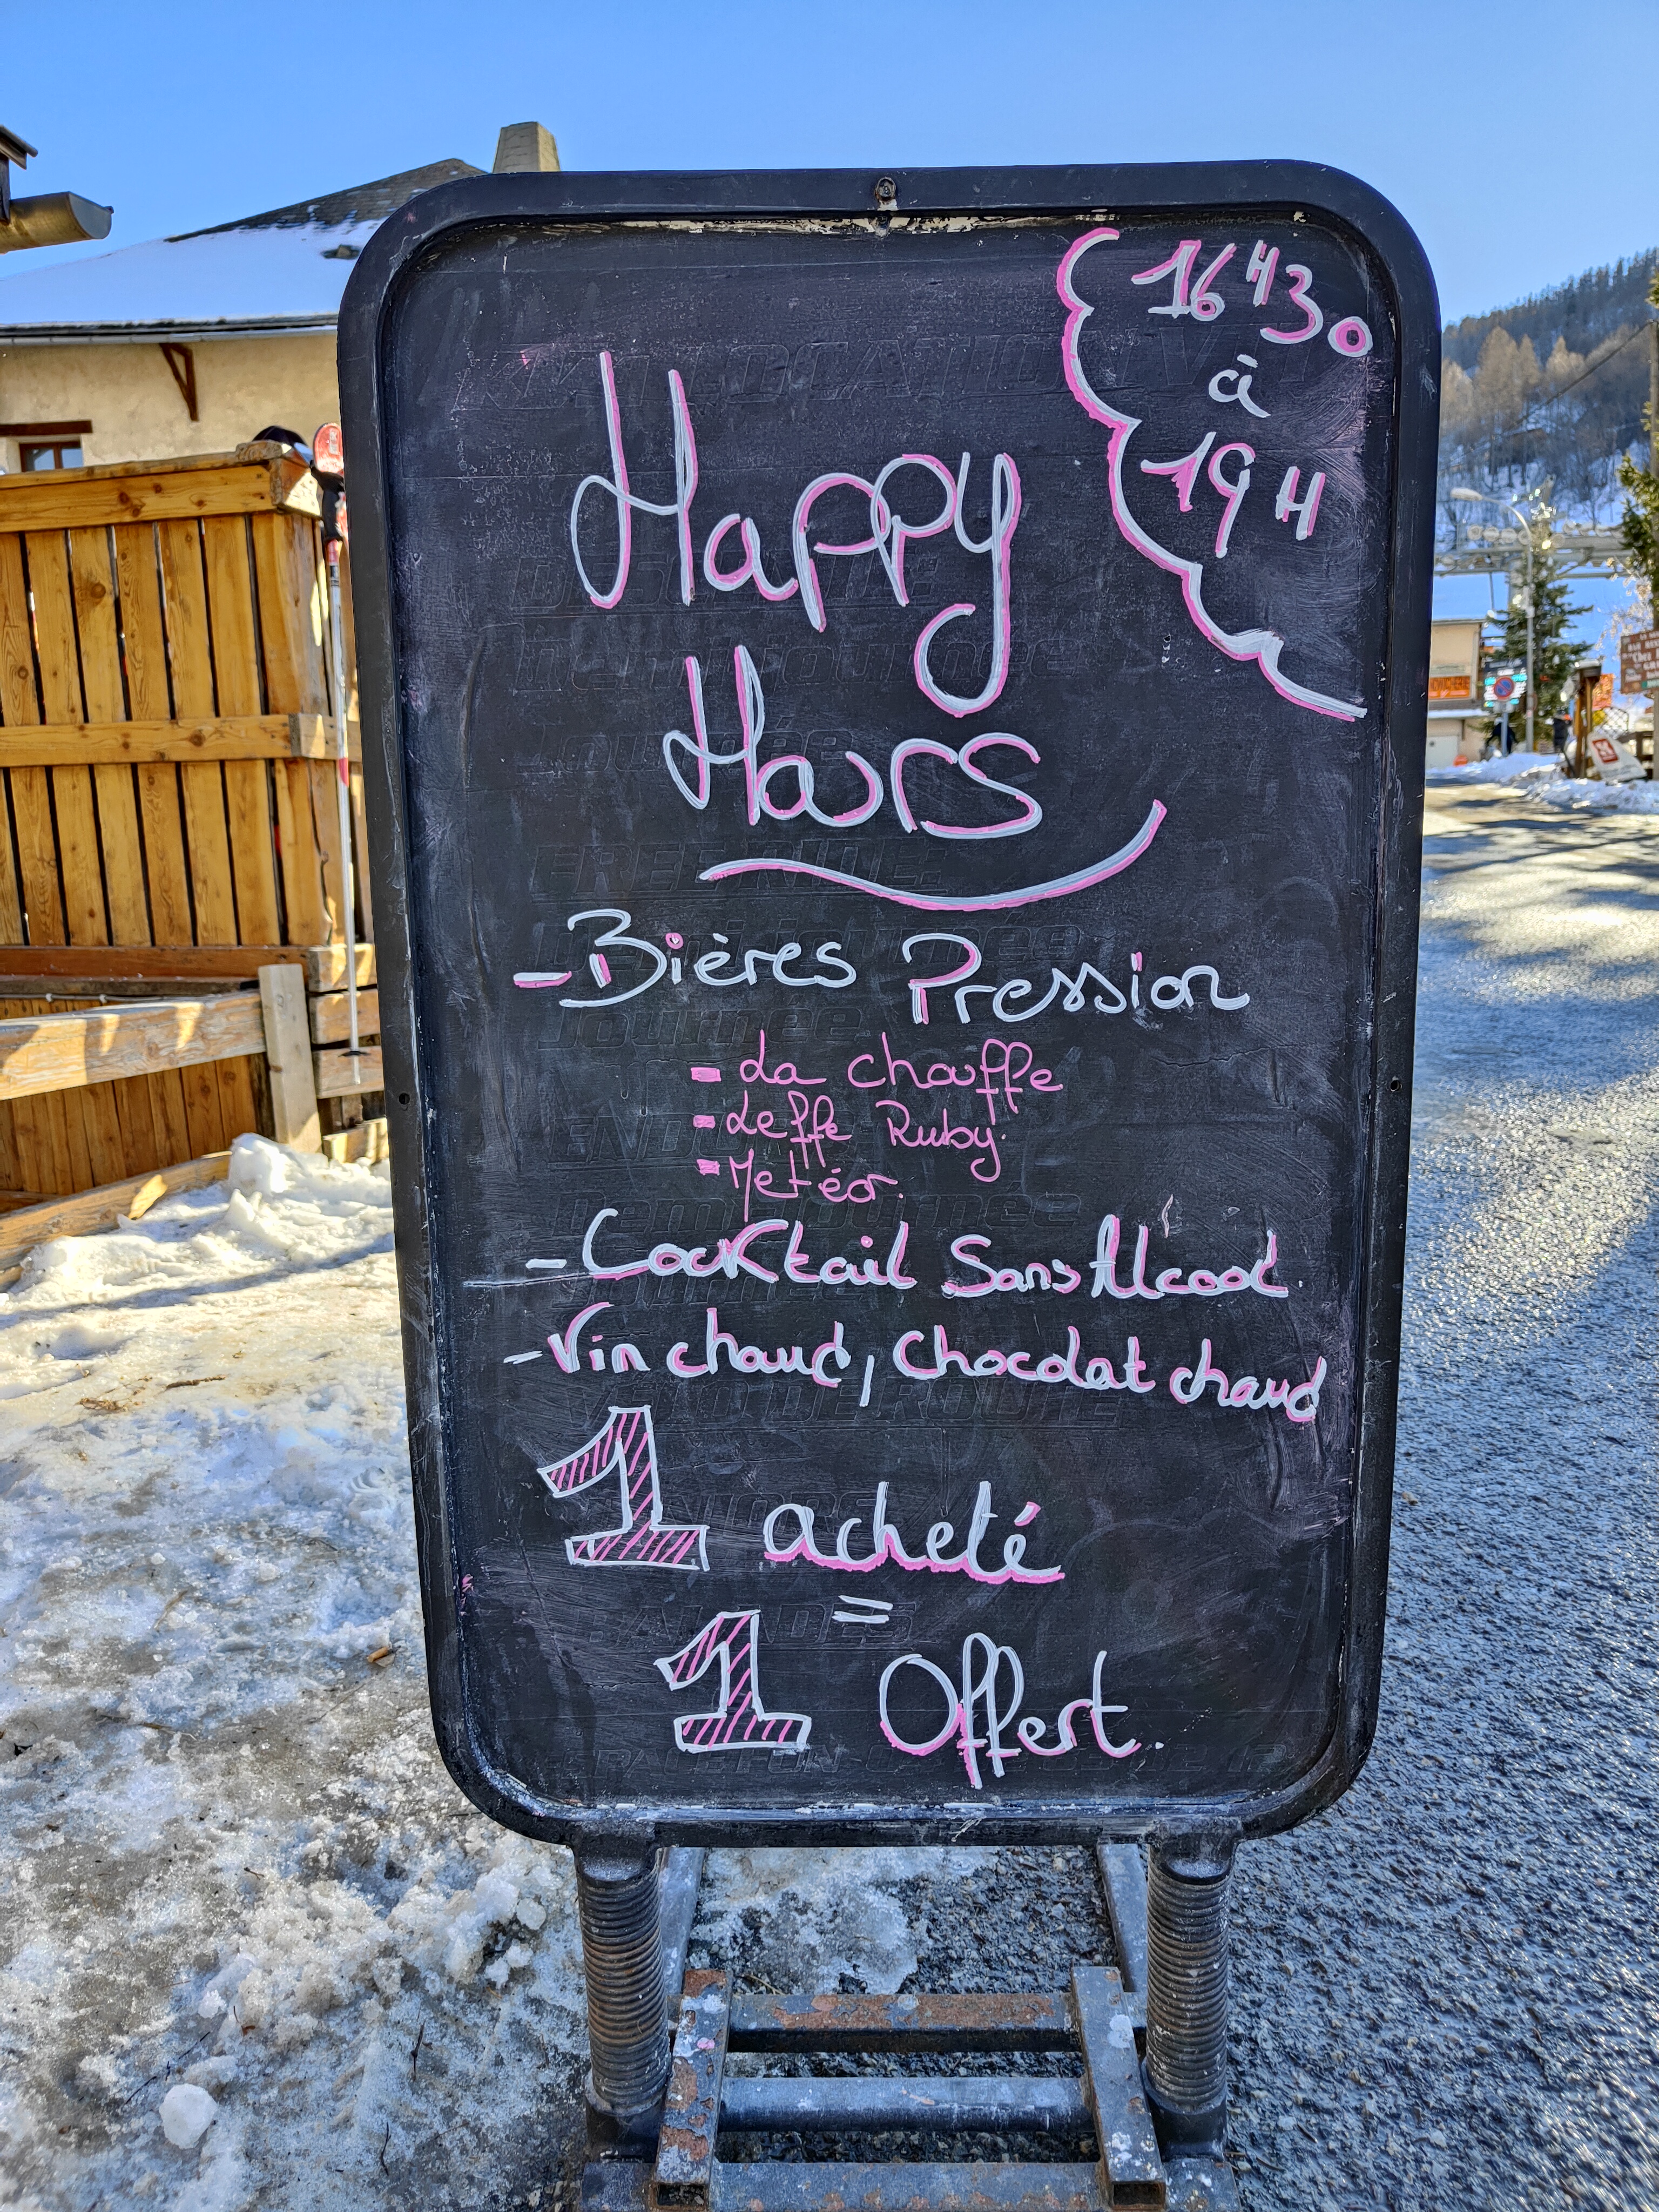 16H30
à
19H
Happy
Hours
- Bières Pression
- La chouffe
- Leffe Ruby.
- Metéor.
- Cocktail Sans Alcool.
- Vin chaud, Chocolat chaud
1 acheté
=
1 Offert.